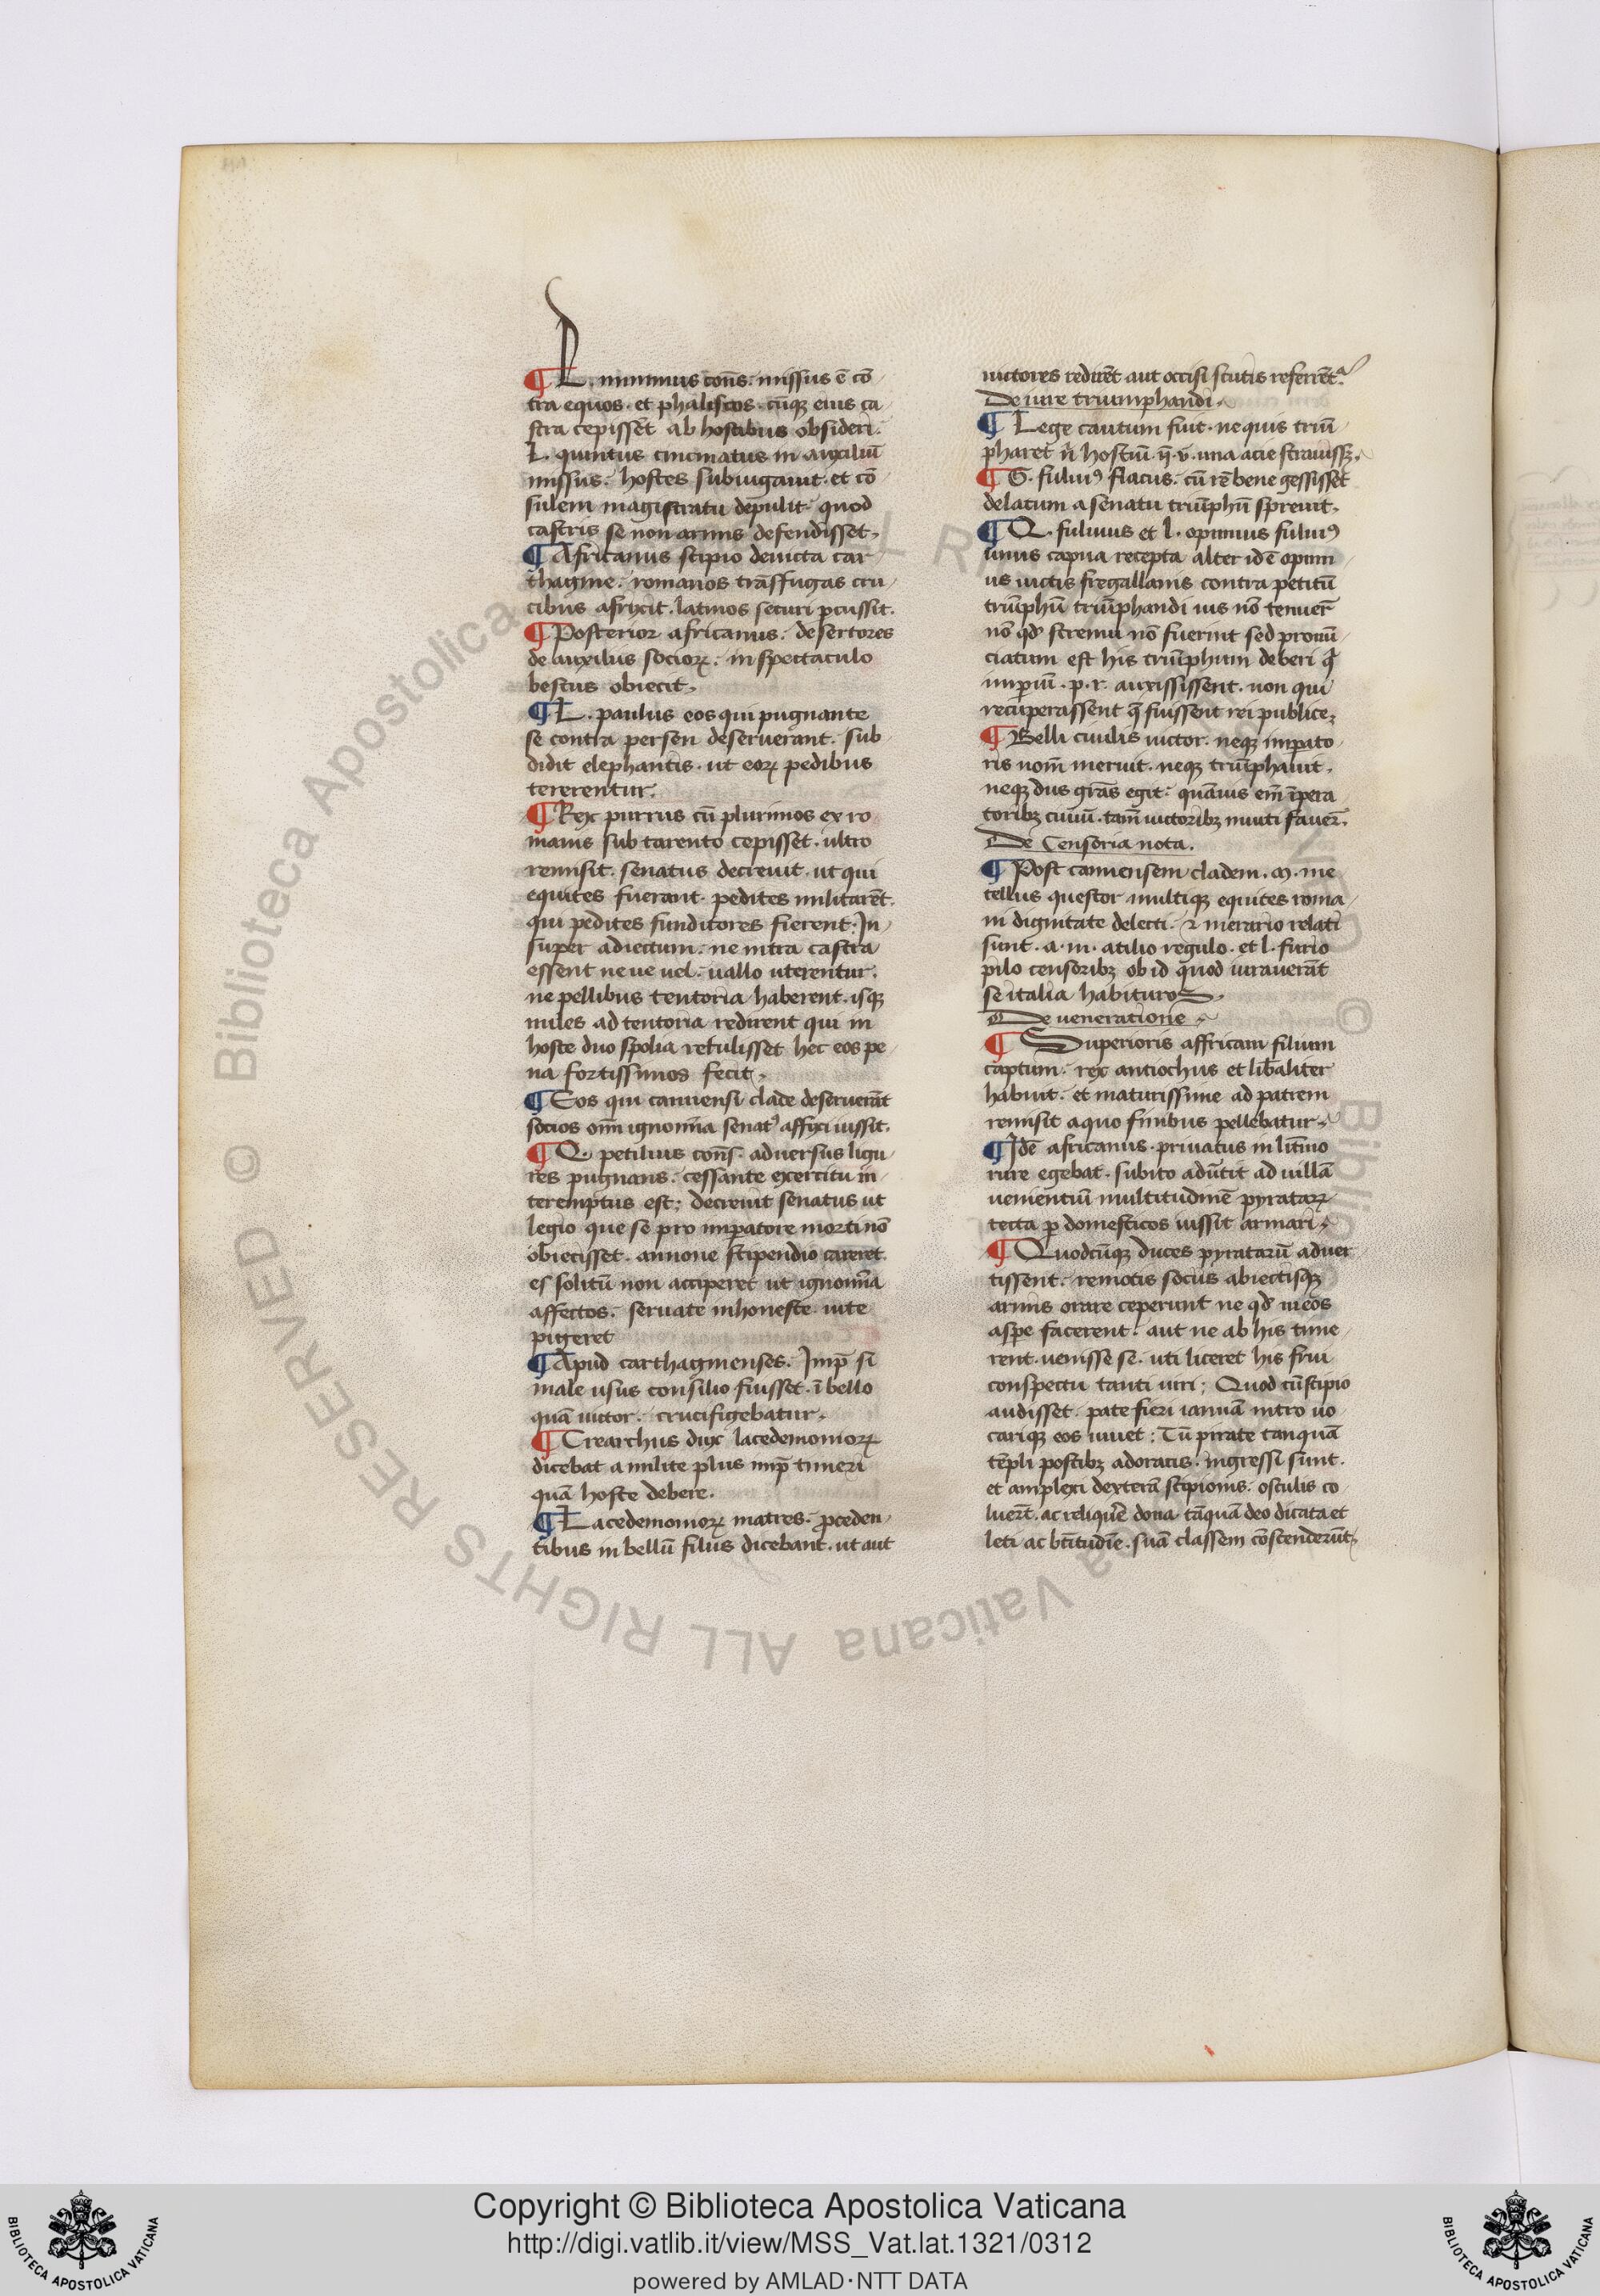 ¶ L. minimus cons. missus ē cō
tra equos. et phaliscos. cūqꝫ eius ca
stra cepissēt ab hostibus obsideri.
L. quintus cincinatus in auxiliū
missus. hostes subiugauit. et cō
sulem magistratu depulit. quod
castris se non armis defendisset.
¶ Africanus scipio deuicta car
thagine. romanos trāsfugas cru
cibus afixit. latinos securi ꝑcussit.
¶ Posterior africanus. desertores
de auxilus socioꝝ. in spectaculo
bestus obiecit.
¶ L. paulus eos qui pugnante
se contra persen deseruerant. sub
didit elephantis. ut eoꝝ pedibus
tererentur.
¶ Rex purrus cū plurimos ex ro
manis sub tarento cepisset. ultro
remisit. senatus decreuit. ut qui
equites fuerant. pedites militarēt.
qui pedites funditores fierent. In
super adiectum. ne intra castra
essent neue uel. uallo uterentur.
ne pellibus tentoria haberent. isqꝫ
miles ad tentoria redirent qui in
hoste duo spolia retulisset hec eos pe
na fortissimos fecit.
¶ Eos qui cannensi clade deseruerāt
socios om̄i ignomīa senatꝰ affyci iussit.
¶ Q. petilius cons. aduersus ligu
res pugnans. cessante exercitu in
teremptus est; decreuit senatus ut
legio que se pro imꝑatore morti nō
obiecisset. annone stipendio careret.
es solitū non acciperet ut ignomīa
affectos. seruate inhoneste. uite
pigeret
¶ Apud carthaginenses. Imꝑ si
male usus consilio fuisset. ī bello
quā uictor. crucifigebatur.
¶ Crearchus dux lacedemonioꝝ
dicebat a milite plus imꝑ timeri
quā hoste debere.
¶ Lacedemonioꝝ matres. ꝓceden
tibus in bellū filus dicebant. ut aut
uictores redirēt aut occisi scutis referrēt.
De iure triumphandi.
¶ Lege cautum fuit. ne quis triū
pharet n̄ hostiū. v̄. una acie strauissꝫ.
¶ G. fuluiꝰ flacus. cū rē bene gessisset
delatum a senatu triūphū spreuit.
¶ Q. fuluius et l. opimius fuluiꝰ
unus capua recepta alter idē opimi
us uictis fregallanis contra petitū
triūphū triūphandi ius nō tenuer̄
nō qd̓ strenui nō fuerint sed pronū
ciatum est his triūphum deberi q̓
imꝑiū. p. r. auxississent. non qui
recuperassent q̄ fuissent rei publice.
¶ Belli ciuilis uictor. neqꝫ imꝑato
ris nom̄ meruit. neqꝫ triūphauit.
neqꝫ dus grās egit. quāuis em̄ īpera
toribꝫ ciuiū. tam̄ uictoribꝫ inuiti fauer̄.
De Censoria nota.
¶ Post cannensem cladem. m. me
tellus questor multiqꝫ equites roma
ni dignitate delecti. ⁊ in erario relati
sunt. a. m. atilio regulo. et l. furio
pilo censoribꝫ ob id quod iurauerāt
se italia habituros.
De ueneratione.
¶ Superioris affricani filium
captum. rex antiochus et libaliter
habuit. et maturissime ad patrem
remisit a quo finibus pellebatur.
¶ Idē africanus. priuatus in lit̄ino
rure egebat. subito adūtit ad uillā
uenientiū multitudinē pyrataꝝ
tecta ꝑ domesticos iussit armari.
¶ Quodcūqꝫ duces pyratarū aduer
tissent. remotis socus abiectisqꝫ
armis orare ceperunt ne qd̓ in eos
asꝑe facerent. aut ne ab his time
rent. uenisse se. uti liceret his frui
conspectu tanti uiri; Quod cū scipio
audisset. pate fieri ianuā intro uo
cariqꝫ eos iuuet: Tū pirate tanquā
tēpli postibꝫ adoratis. ingressi sunt.
et amplexi dexterā scipionis. osculis co
luer̄t. ac reliquer̄ dona tāquā deo dicata et
leti ac bt̄itudīe. suā classem cōscenderūt.
Copyright © Biblioteca Apostolica Vaticana
http://digi.vatlib.it/view/MSS_Vat.lat.1321/0312
powered by AMLAD·NTT DATA
BIBLIOTECA APOSTOLICA VATICANA
BIBLIOTECA APOSTOLICA VATICANA
© Biblioteca Apostolica Vaticana ALL RIGHTS RESERVED